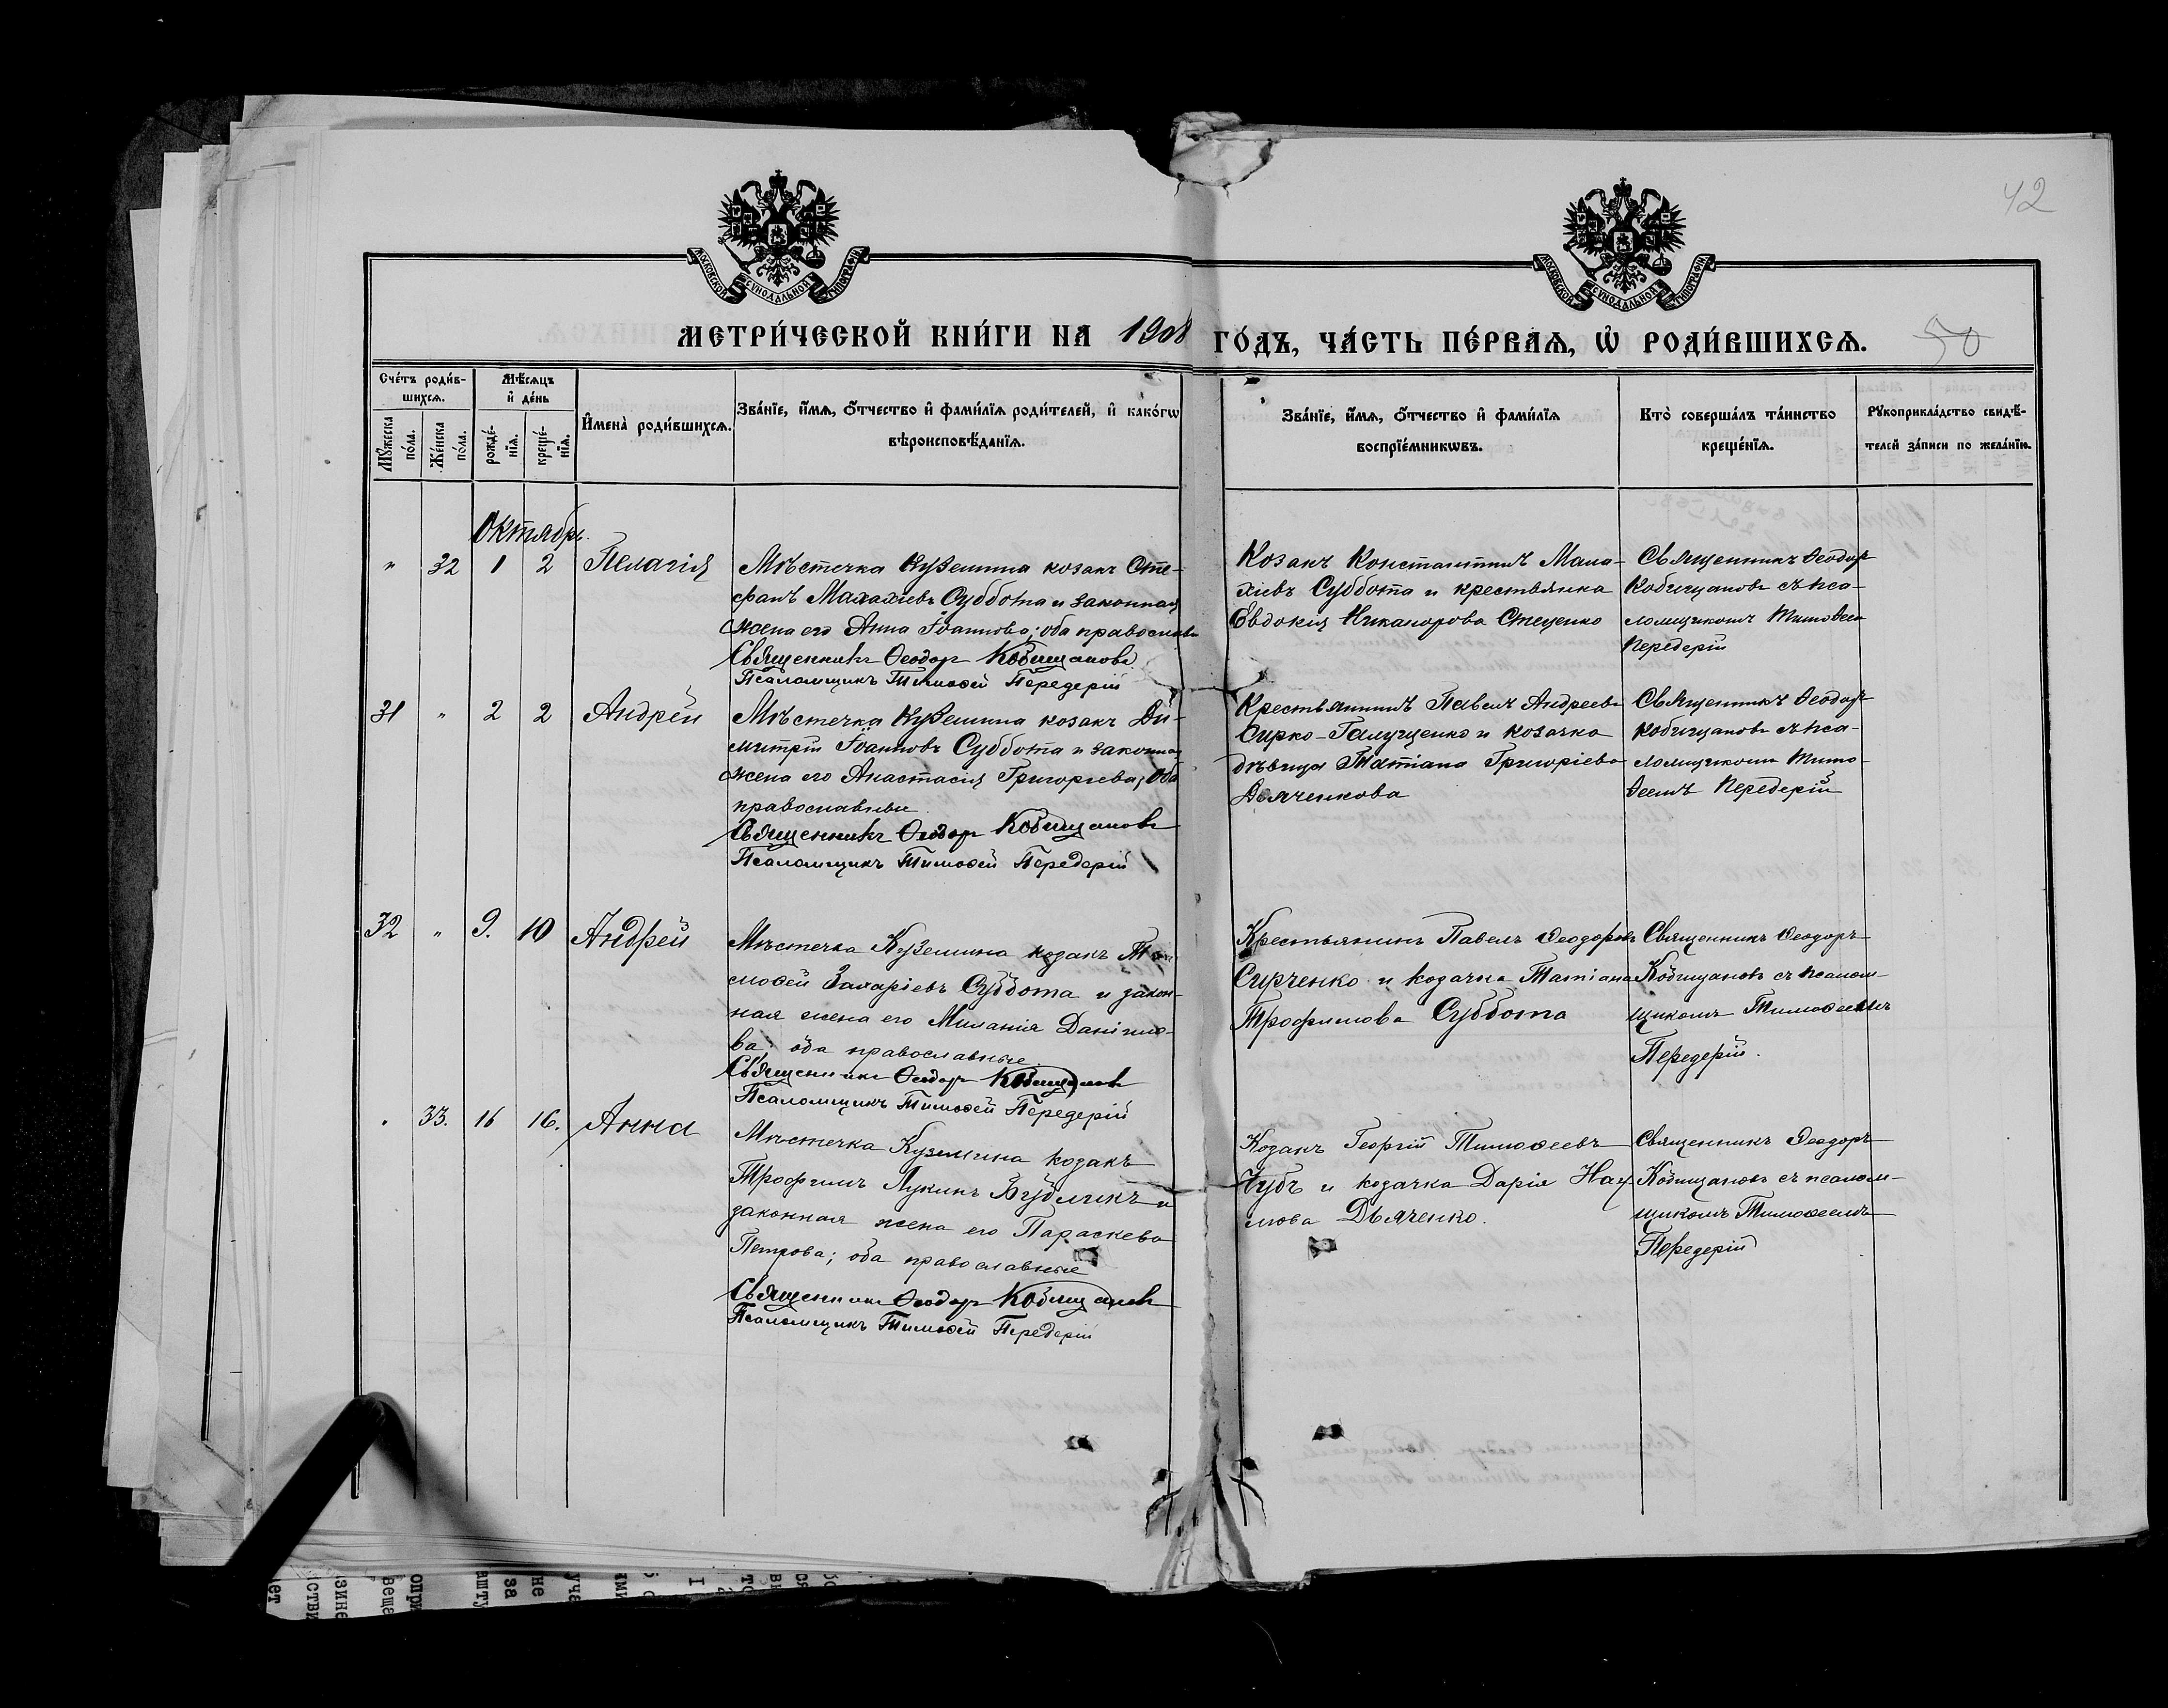 42
МОСКОВСКОЙ СѴНОДАЛЬНОЙ ТИПОГРАФІИ
МОСКОВСКОЙ СѴНОДАЛЬНОЙ ТИПОГРАФІИ
МЕТРИ́ЧЕСКОЙ КНИ́ГИ НА 1908 ГО́ДЪ, ЧА́СТЬ ПЕ́РВАѦ, Ѡ҆ РОДИ́ВШИХСѦ. 50
Сче́тъ роди́в-
шихсѧ.
Мꙋ́жеска по́ла.
Же́нска по́ла.
Мѣ́сѧцъ
и҆ де́нь
рожде́-
нїѧ.
креще́-
нїѧ.
И҆мена̀ роди́вшихсѧ.
Зва́нїе, и҆́мѧ, ѻ҆́тчество и҆ фами́лїѧ роди́телей, и҆ како́гѡ
вѣроисповѣ́данїѧ.
Зва́нїе, и҆́мѧ, ѻ҆́тчество и҆ фами́лїѧ
воспрїе́мникѡвъ.
Кто̀ соверша́лъ та́инство
креще́нїѧ.
Рꙋкоприкла́дство свидѣ́-
телей за́писи по жела́нїю.
Октябрь.
" 32 1 2 Пелагія
Мѣстечка Куземина козакъ Сте-
фанъ Малахіевъ Суббота и законная
жена его Анна Іоаннова; оба православн
Священникъ Ѳеодоръ Кобищановъ
Псаломщикъ Тимоѳей Передерій
Козакъ Константинъ Мала-
хіевъ Суббота и крестьянка
Евдокія Никанорова Стеценко
Священникъ Ѳеодоръ
Кобищановъ съ пса-
ломщикомъ Тимоѳеем
Передерій
31 " 2 2 Андрей
Мѣстечка Куземина козакъ Ди-
митрій Іоанновъ Суббота и законная
жена его Анастасія Григорьева; оба
православные
Священникъ Ѳеодоръ Кобищановъ
Псаломщикъ Тимоѳей Передерій
Крестьянинъ Павелъ Андреевъ
Сирко-Галущенко и козачка
дѣвица Татіана Григоріева
Дьяченкова
Священникъ Ѳеодоръ
Кобищановъ съ пса-
ломщикомъ Тимо-
ѳеемъ Передерій
32 " 9. 10 Андрей
Мѣстечка Куземина козакъ Ти
моѳей Захаріевъ Суббота и закон-
ная жена его Миланія Даніило-
ва; оба православные.
Священникъ Ѳеодоръ Кобищановъ
Псаломщикъ Тимоѳей Передерій
Крестьянинъ Павелъ Ѳеодоровъ
Сирченко и козачка Татіана
Трофимова Суббота
Священникъ Ѳеодоръ
Кобищановъ съ псалом-
щикомъ Тимоѳеемъ
Передерій.
" 33. 16 16. Анна
Мѣстечка Куземина козакъ
Трофимъ Лукинъ Бубликъ и
законная жена его Параскева
Петрова; оба православные
Священникъ Ѳеодоръ Кобищановъ
Псаломщикъ Тимоѳей Передерій
Козакъ Георгій Тимоѳеевъ
Чубъ и козачка Дарія Нау
мова Дьяченко.
Священникъ Ѳеодоръ
Кобищановъ съ псалом-
щикомъ Тимоѳеемъ
Передерій